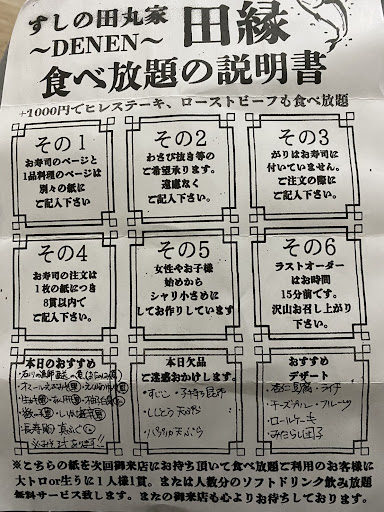 すしの田丸家
～DENEN～
田縁
食べ放題の説明書
+1000円でヒレステーキ、ローストビーフも食べ放題
その1
お寿司のページと
1品料理のページは
別々の紙に
ご記入下さい
その2
わさび抜き等の
ご希望承ります。
遠慮なく
ご記入下さい。
その3
がりはお寿司に
付いていません。
ご注文の際に
ご記入下さい。
その4
お寿司の注文は
1枚の紙につき
8貫以内で
ご記入下さい
その5
女性やお子様
始めから
シャリ小さめに
してお作りしています
その6
ラストオーダー
はお時間
15分前です。
沢山お召し上がり
下さい。
本日のおすすめ
本日欠品
ご迷惑おかけします。
・すじこ ・子持ち昆布
・ししとう天ぷら
おすすめ
デザート
・杏仁豆腐 ・ライチ
・チーズケーキ ・フルーツ
・ロールケーキ
・みたらし団子
※こちらの紙を次回御来店にお持ち頂いて食べ放題ご利用のお客様に
大トロor生うに1人様1貫。または人数分のソフトドリンク飲み放題
無料サービス致します。またの御来店も心よりお待ちしております。